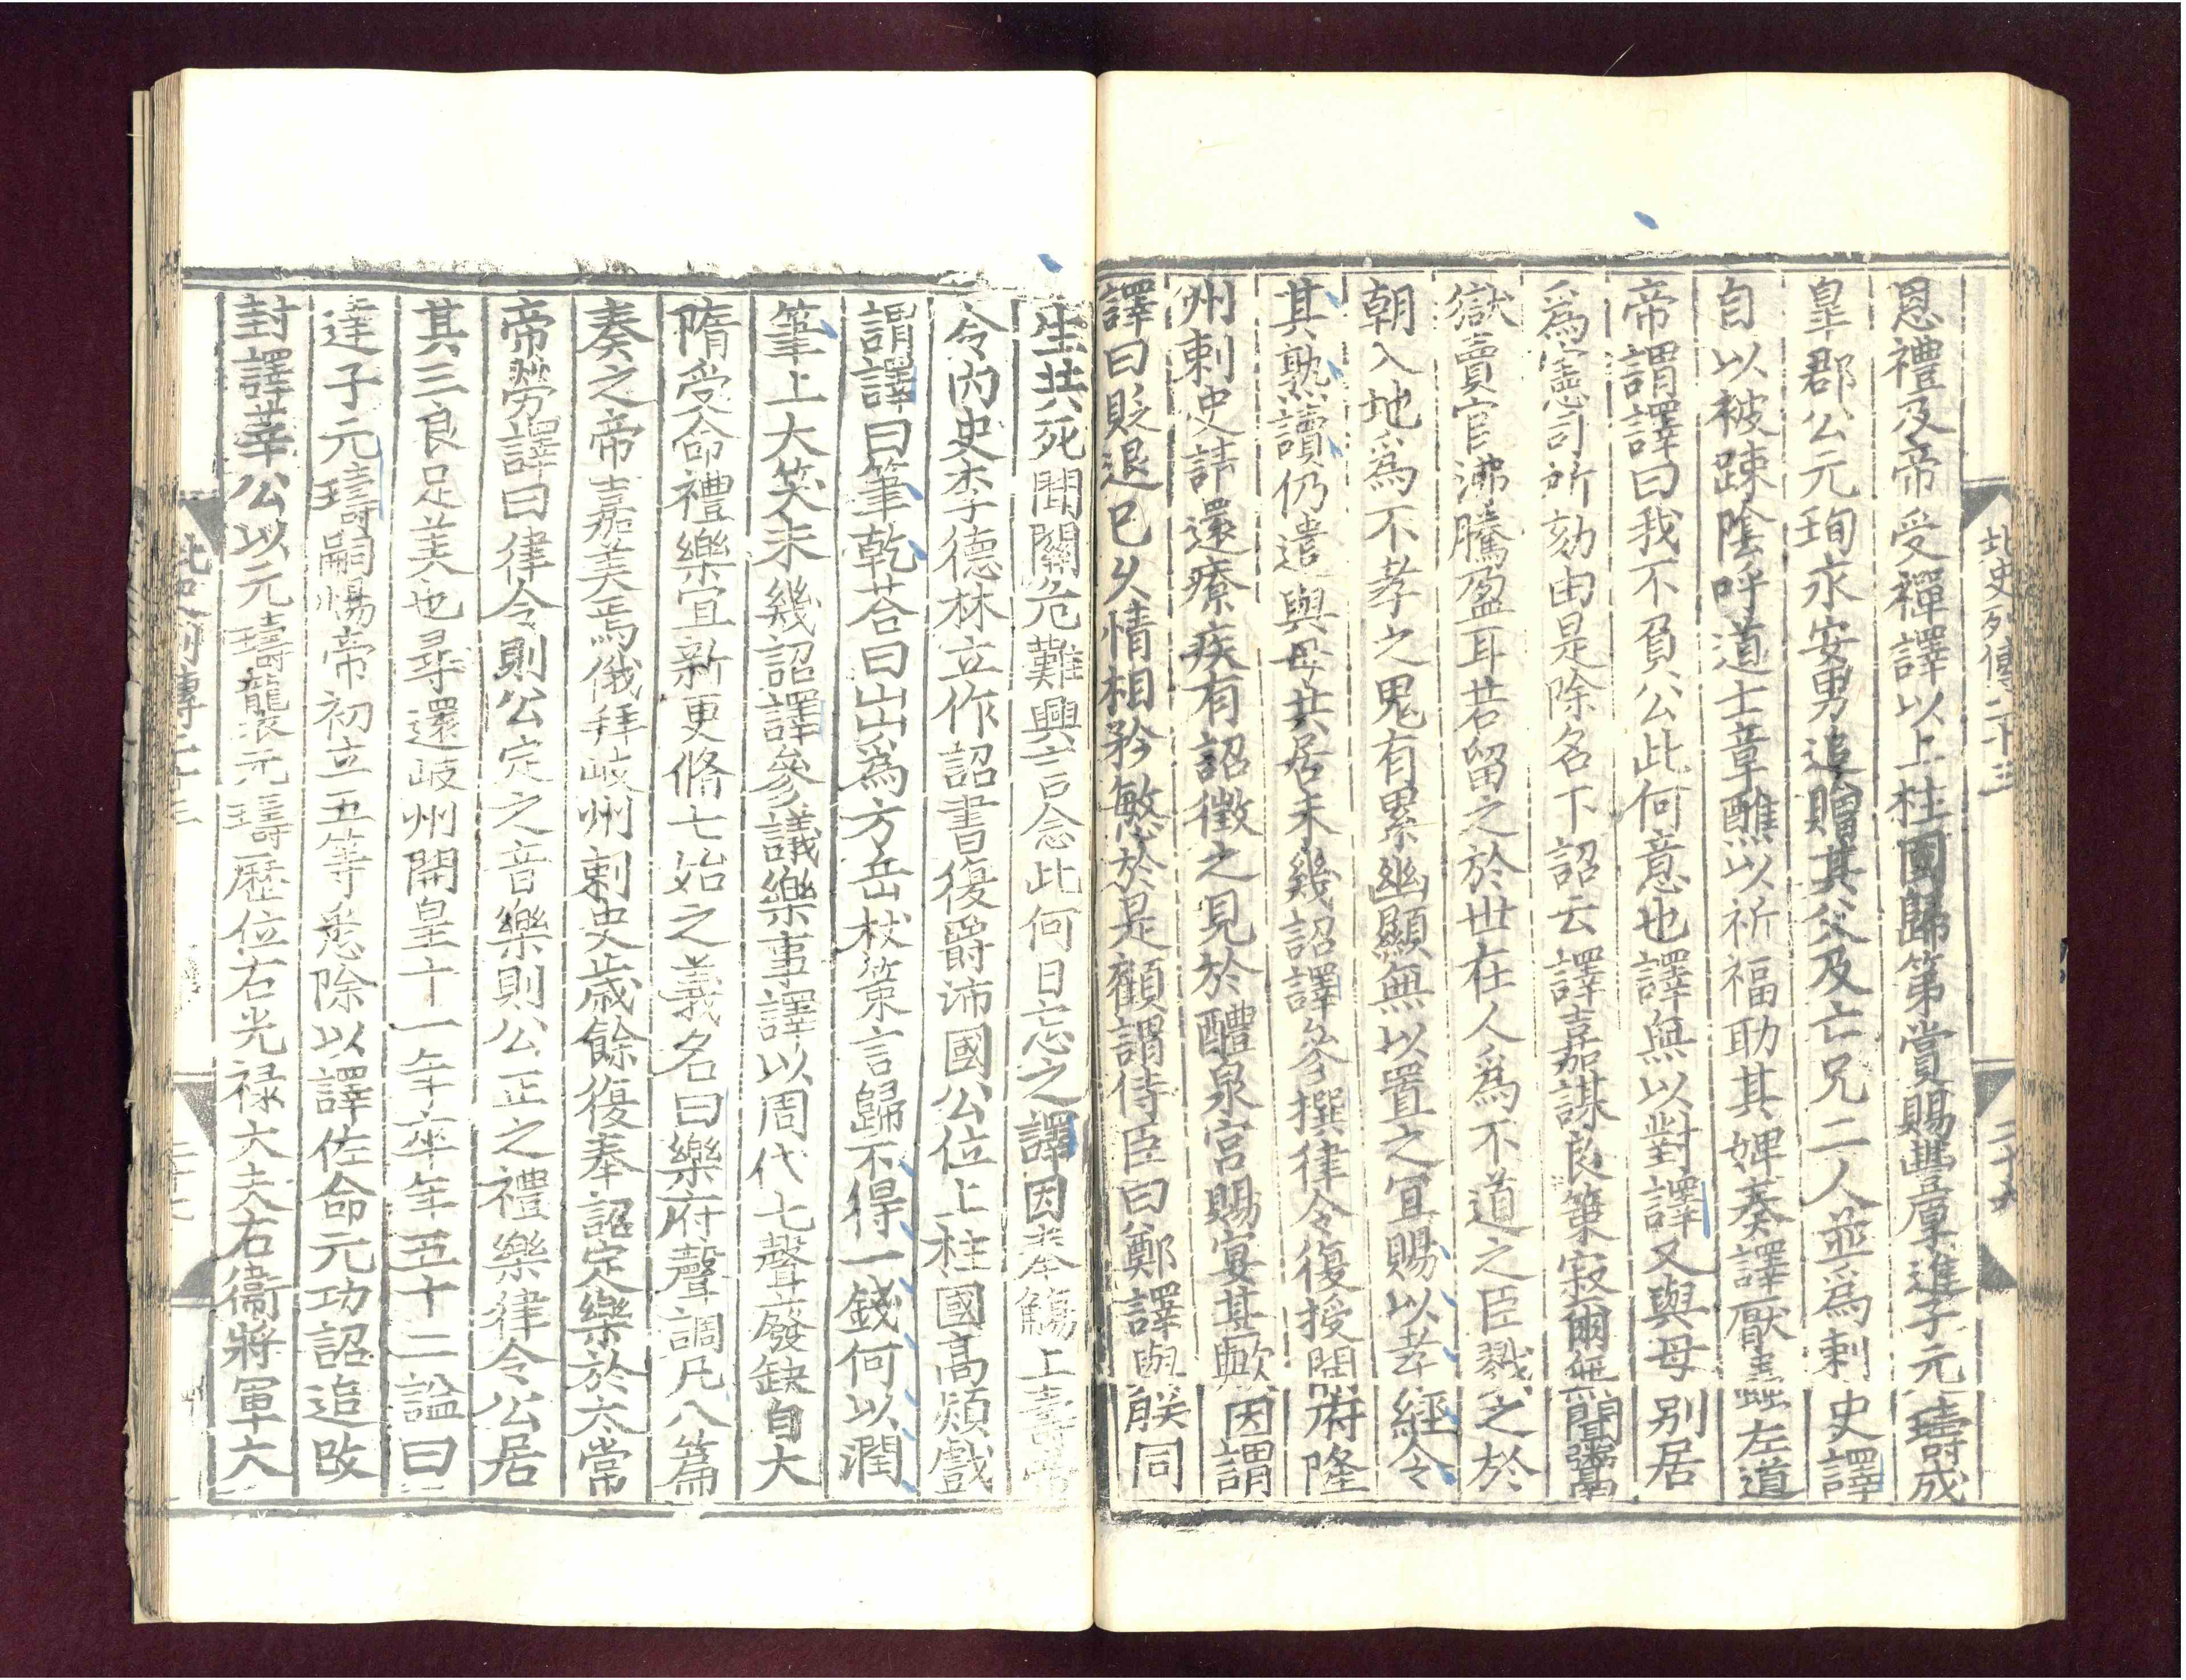 北史列傳二十三
二十九
恩禮及帝受禪譯以上柱國歸第賞賜豐厚進子元璹成
皐郡公元珣永安男追贈其父及亡兄二人並爲刺史譯
自以被踈陰呼道士章醮以祈福助其婢奏譯厭蠱左道
帝謂譯曰我不負公此何意也譯無以對譯又與母別居
爲憲司所劾由是除名下詔云譯嘉謀良策寂爾無聞鬻
獄賣官沸騰盈耳若留之於世在人爲不道之臣戮之於
朝入地爲不孝之鬼有累幽顯無以置之宜賜以孝經令
其熟讀仍遣與母共居未幾詔譯參撰律令復授開府隆
州刺史請還療疾有詔徵之見於醴泉宮賜宴甚歡因謂
譯曰貶退已久情相矜愍於是顧謂侍臣曰鄭譯與朕同
生共死間關危難興言念此何日忘之譯因奉觴上壽帝
令內史李德林立作詔書復爵沛國公位上柱國高熲戲
謂譯曰筆乾荅曰出爲方岳杖策言歸不得一錢何以潤
筆上大笑未幾詔譯參議樂事譯以周代七聲廢缺自大
隋受命禮樂宜新更脩七始之義名曰樂府聲調凡八篇
奏之帝嘉美焉俄拜岐州刺史歲餘復奉詔定樂於太常
帝勞譯曰律令則公定之音樂則公正之禮樂律令公居
其三良足美也尋還岐州開皇十一年卒年五十二諡曰
達子元璹嗣煬帝初立五等悉除以譯佐命元功詔追改
封譯莘公以元璹襲元璹歷位右光禄大夫右衞將軍大
北史列傳二十三